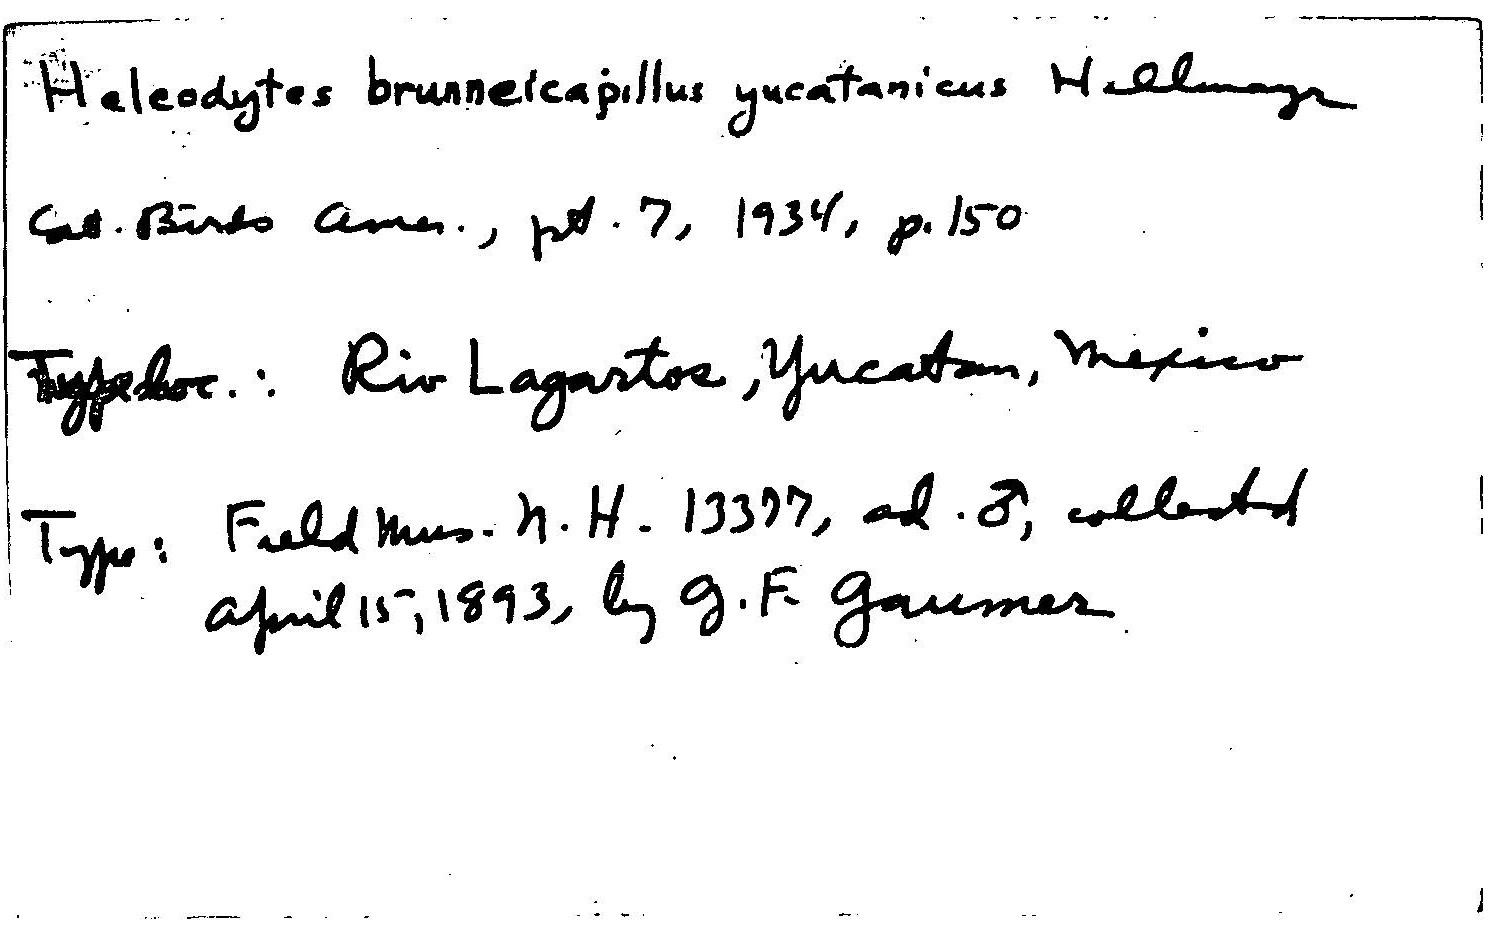 Heleodytes brunneicapillus yucatanicus Hellmayr
Cat. Birds Amer., pt. 7, 1934, p. 150
Type loc.: Rio Lagartos, Yucatan, Mexico
Type: Field Mus. N. H. 13377, ad. ♂, collected
April 15, 1893, by G. F. Gaumer